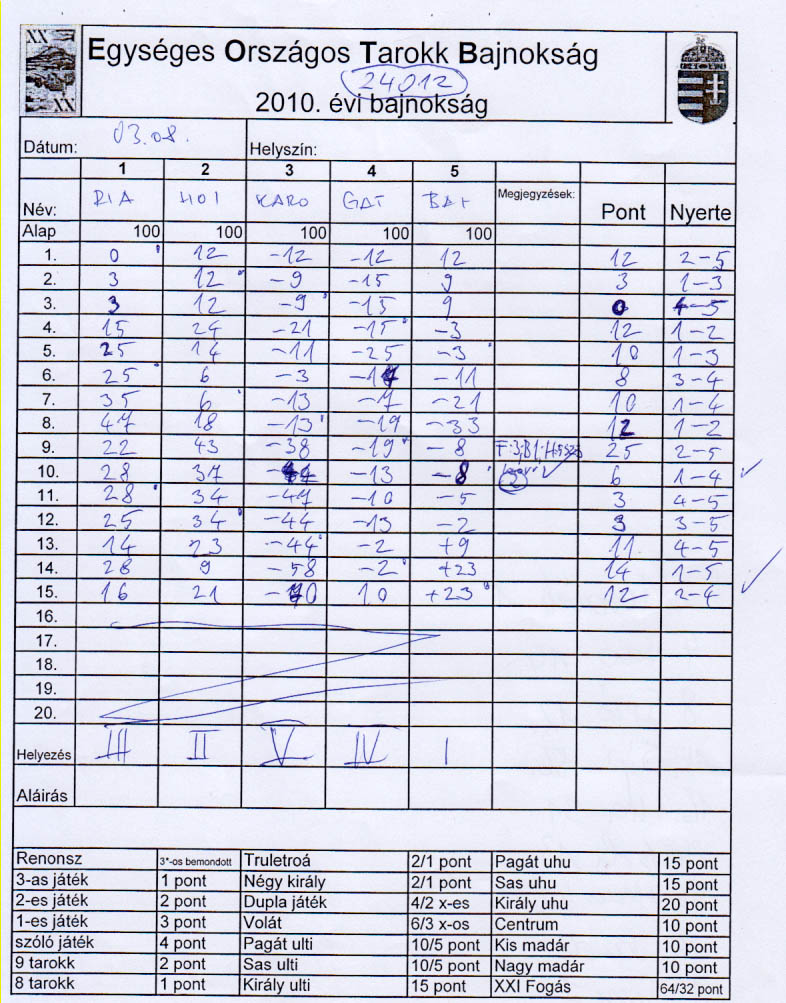 XX
XX
Egységes Országos Tarokk Bajnokság
24012
2010. évi bajnokság
Dátum: 03.08. Helyszín:
1 2 3 4 5
Név: RIA HOI KARO GAT BAI Megjegyzések: Pont Nyerte
Alap 100 100 100 100 100
1. 0 12 -12 -12 12 12 2-5
2. 3 12 -9 -15 9 3 1-3
3. 3 12 -9 -15 9 0 4-5
4. 15 24 -21 -15 -3 12 1-2
5. 25 14 -11 -25 -3 10 1-3
6. 25 6 -3 -17 -11 8 3-4
7. 35 6 -13 -7 -21 10 1-4
8. 47 18 -13 -19 -33 12 1-2
9. 22 43 -38 -19 -8 25 2-5
10. 28 37 -13 -8 6 1-4
11. 28 34 -47 -10 -5 3 4-5
12. 25 34 -44 -13 -2 3 3-5
13. 14 23 -44 -2 +9 11 4-5
14. 28 9 -58 -2 +23 14 1-5
15. 16 21 -70 10 +23 12 2-4
16.
17.
18.
19.
20.
Helyezés III II V IV I
Aláírás
Renonsz 3*-os bemondott Truletroá 2/1 pont Pagát uhu 15 pont
3-as játék 1 pont Négy király 2/1 pont Sas uhu 15 pont
2-es játék 2 pont Dupla játék 4/2 x-es Király uhu 20 pont
1-es játék 3 pont Volát 6/3 x-os Centrum 10 pont
szóló játék 4 pont Pagát ulti 10/5 pont Kis madár 10 pont
9 tarokk 2 pont Sas ulti 10/5 pont Nagy madár 10 pont
8 tarokk 1 pont Király ulti 15 pont XXI Fogás 64/32 pont